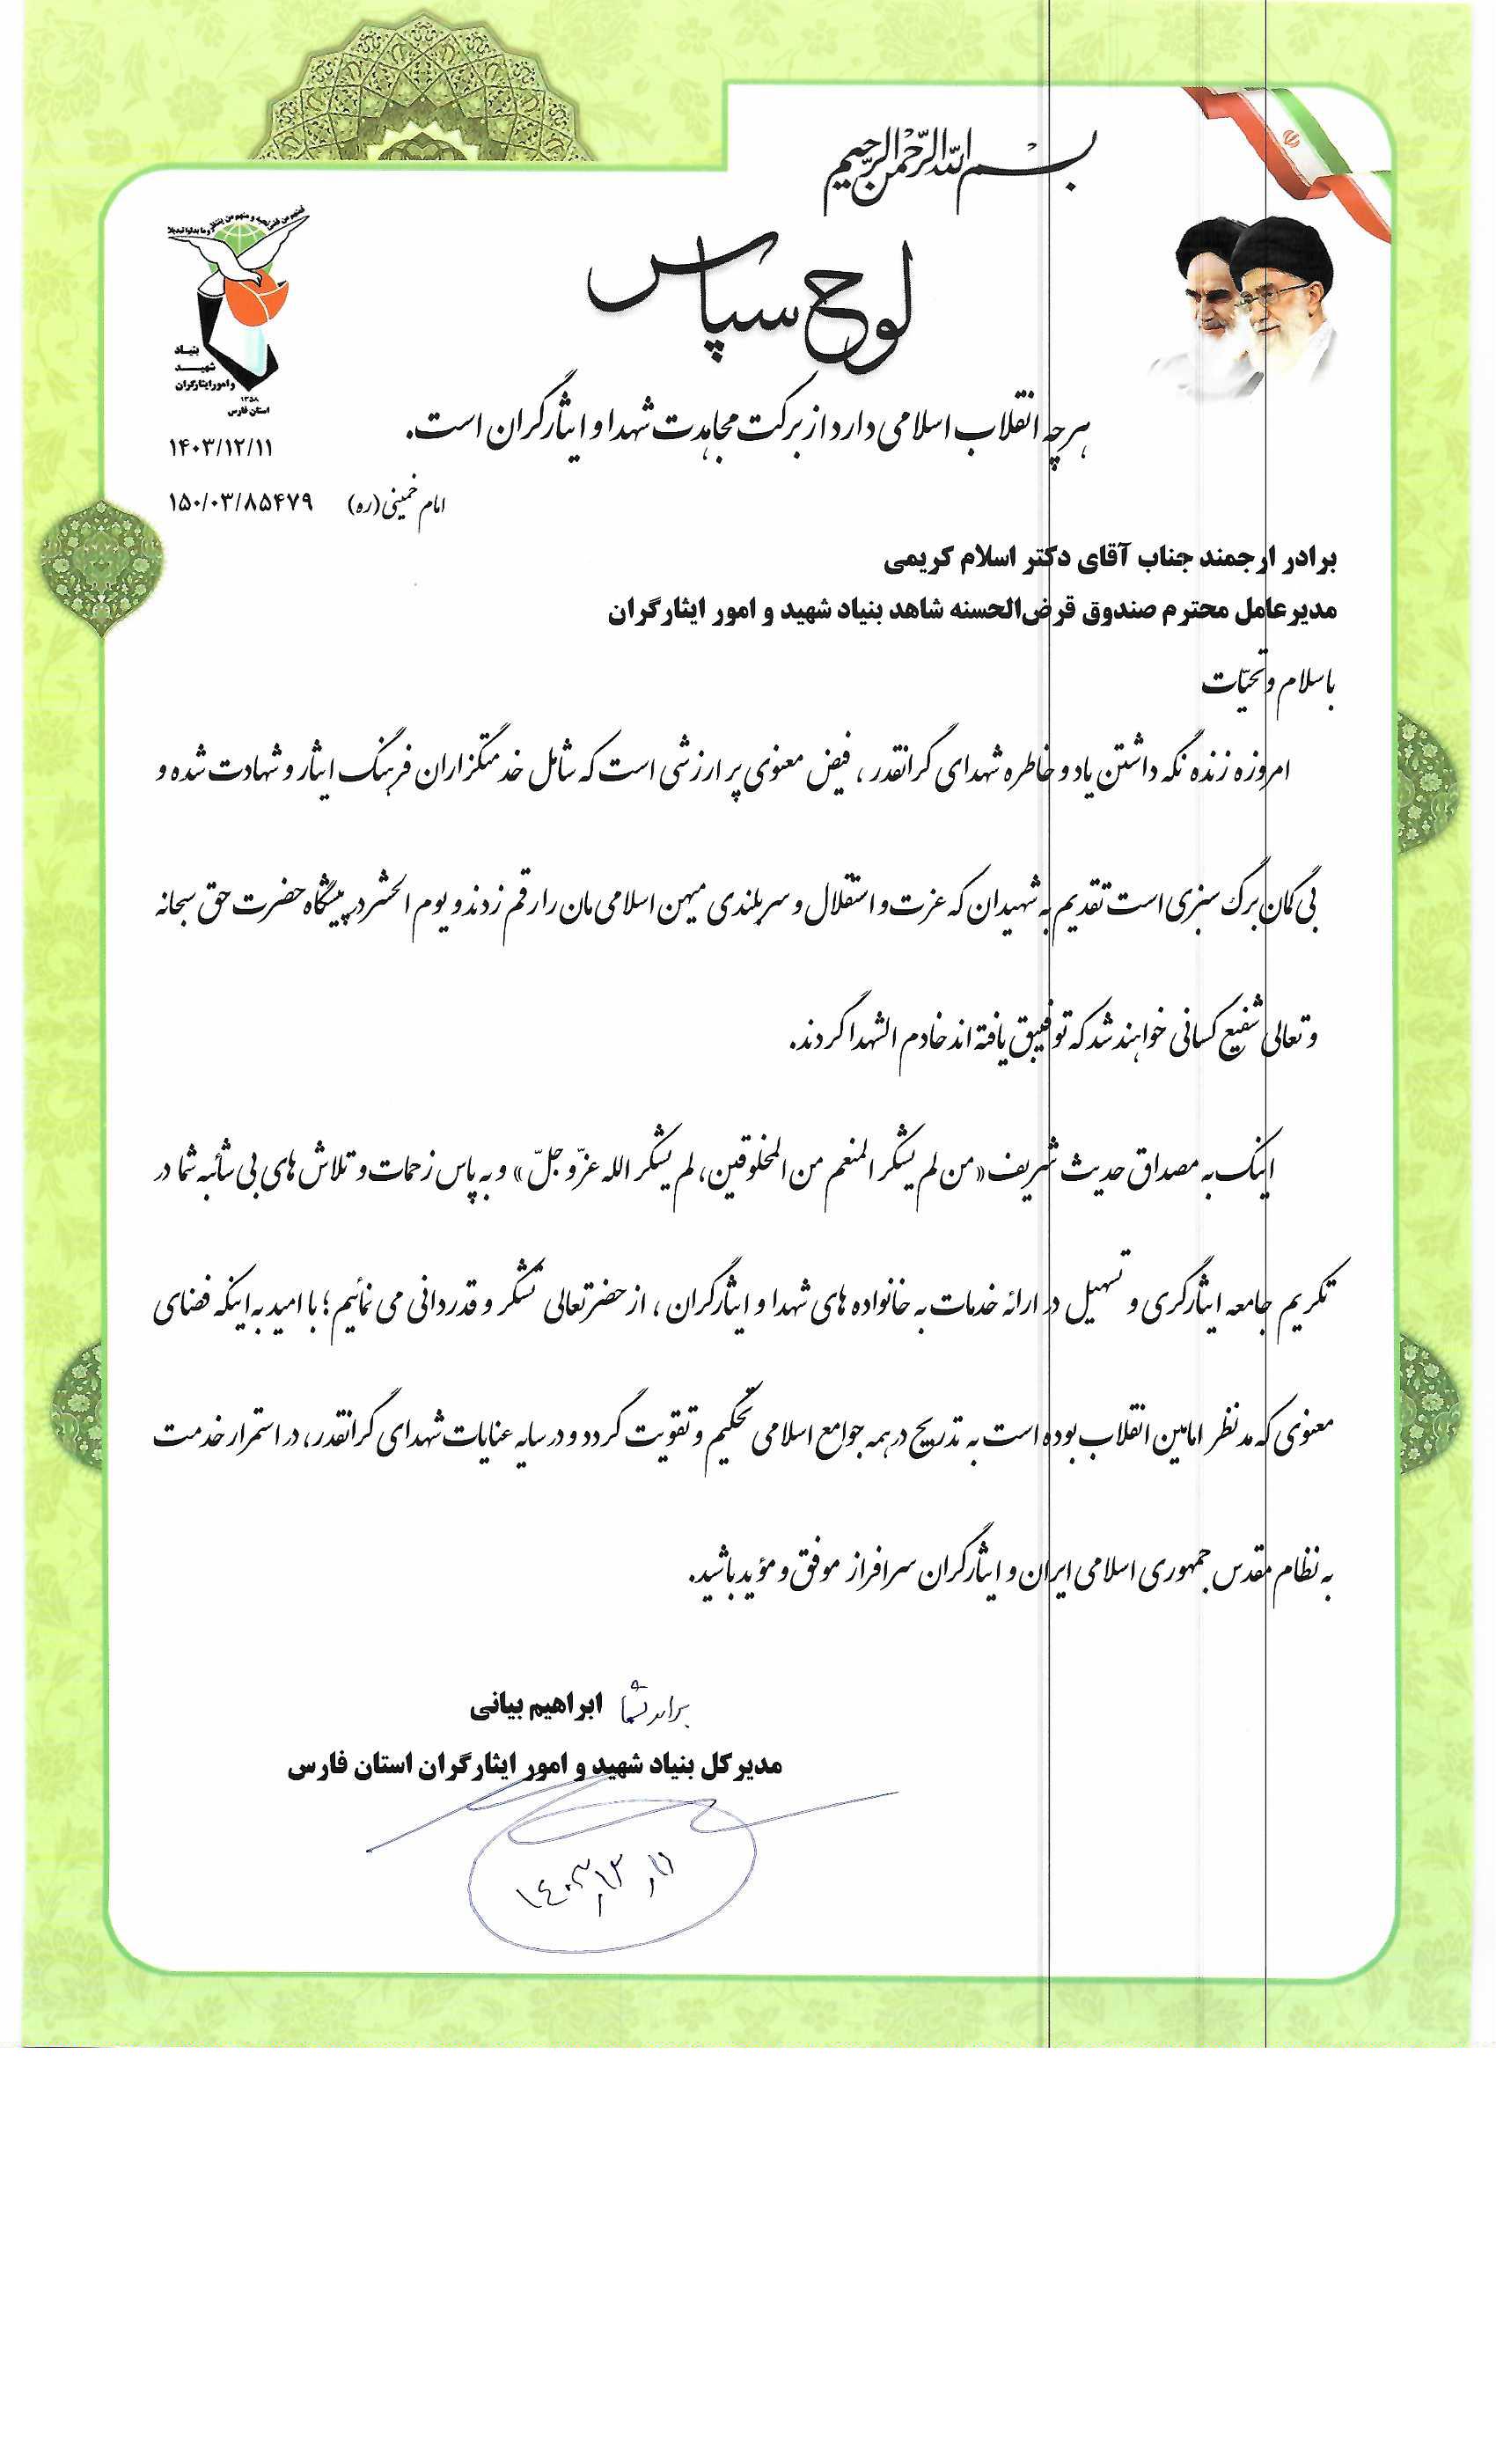 بسم الله الرحمن الرحیم
لوح سپاس
فمنهم من قضی نحبه و منهم من ینتظر و ما بدلوا تبدیلا
بنیاد
شهید
و امور ایثارگران
۱۳۵۸
استان فارس
هرچه انقلاب اسلامی دارد از برکت مجاهدت شهدا و ایثارگران است.
۱۴۰۳/۱۲/۱۱
امام خمینی (ره)
۱۵۰/۰۳/۸۵۴۷۹
برادر ارجمند جناب آقای دکتر اسلام کریمی
مدیرعامل محترم صندوق قرض‌الحسنه شاهد بنیاد شهید و امور ایثارگران
با سلام و تحیّات
امروزه زنده نگه داشتن یاد و خاطره شهدای گرانقدر، فیض معنوی پر ارزشی است که شامل خدمتگزاران فرهنگ ایثار و شهادت شده و
بی گمان برگ سبزی است تقدیم به شهیدان که عزت و استقلال و سربلندی میهن اسلامی مان را رقم زدند و یوم الحشر در پیشگاه حضرت حق سبحانه
و تعالی شفیع کسانی خواهند شد که توفیق یافته اند خادم الشهدا گردند.
اینک به مصداق حدیث شریف «من لم یشکر المنعم من المخلوقین، لم یشکر الله عزّ و جلّ» و به پاس زحمات و تلاش های بی شائبه شما در
تکریم جامعه ایثارگری و تسهیل در ارائه خدمات به خانواده های شهدا و ایثارگران، از حضرتعالی تشکر و قدردانی می نمائیم؛ با امید به اینکه فضای
معنوی که مدنظر امامین انقلاب بوده است به تدریج در همه جوامع اسلامی تحکیم و تقویت گردد و در سایه عنایات شهدای گرانقدر، در استمرار خدمت
به نظام مقدس جمهوری اسلامی ایران و ایثارگران سرافراز موفق و مؤید باشید.
برادر شما ابراهیم بیانی
مدیرکل بنیاد شهید و امور ایثارگران استان فارس
۱۴۰۳/۱۲/۱۱